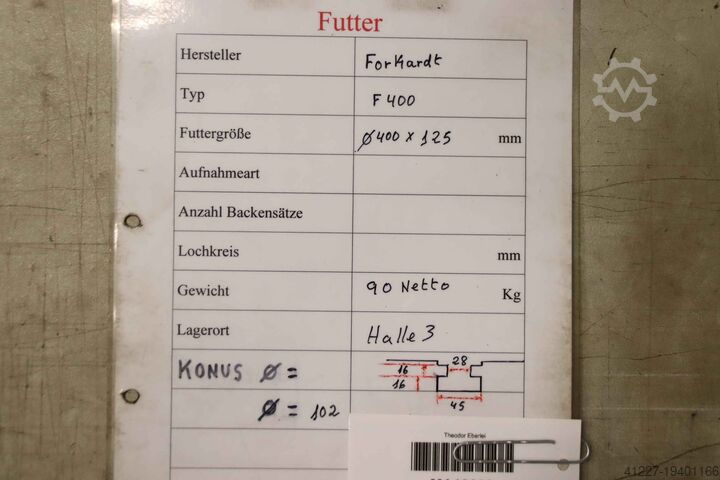 Futter
Hersteller Forkardt
Typ F 400
Futtergröße Ø 400 x 125 mm
Aufnahmeart
Anzahl Backensätze
Lochkreis mm
Gewicht 90 Netto Kg
Lagerort Halle 3
KONUS Ø =
28
16
16
Ø = 102
45
Theodor Eberlei
41227-19401166